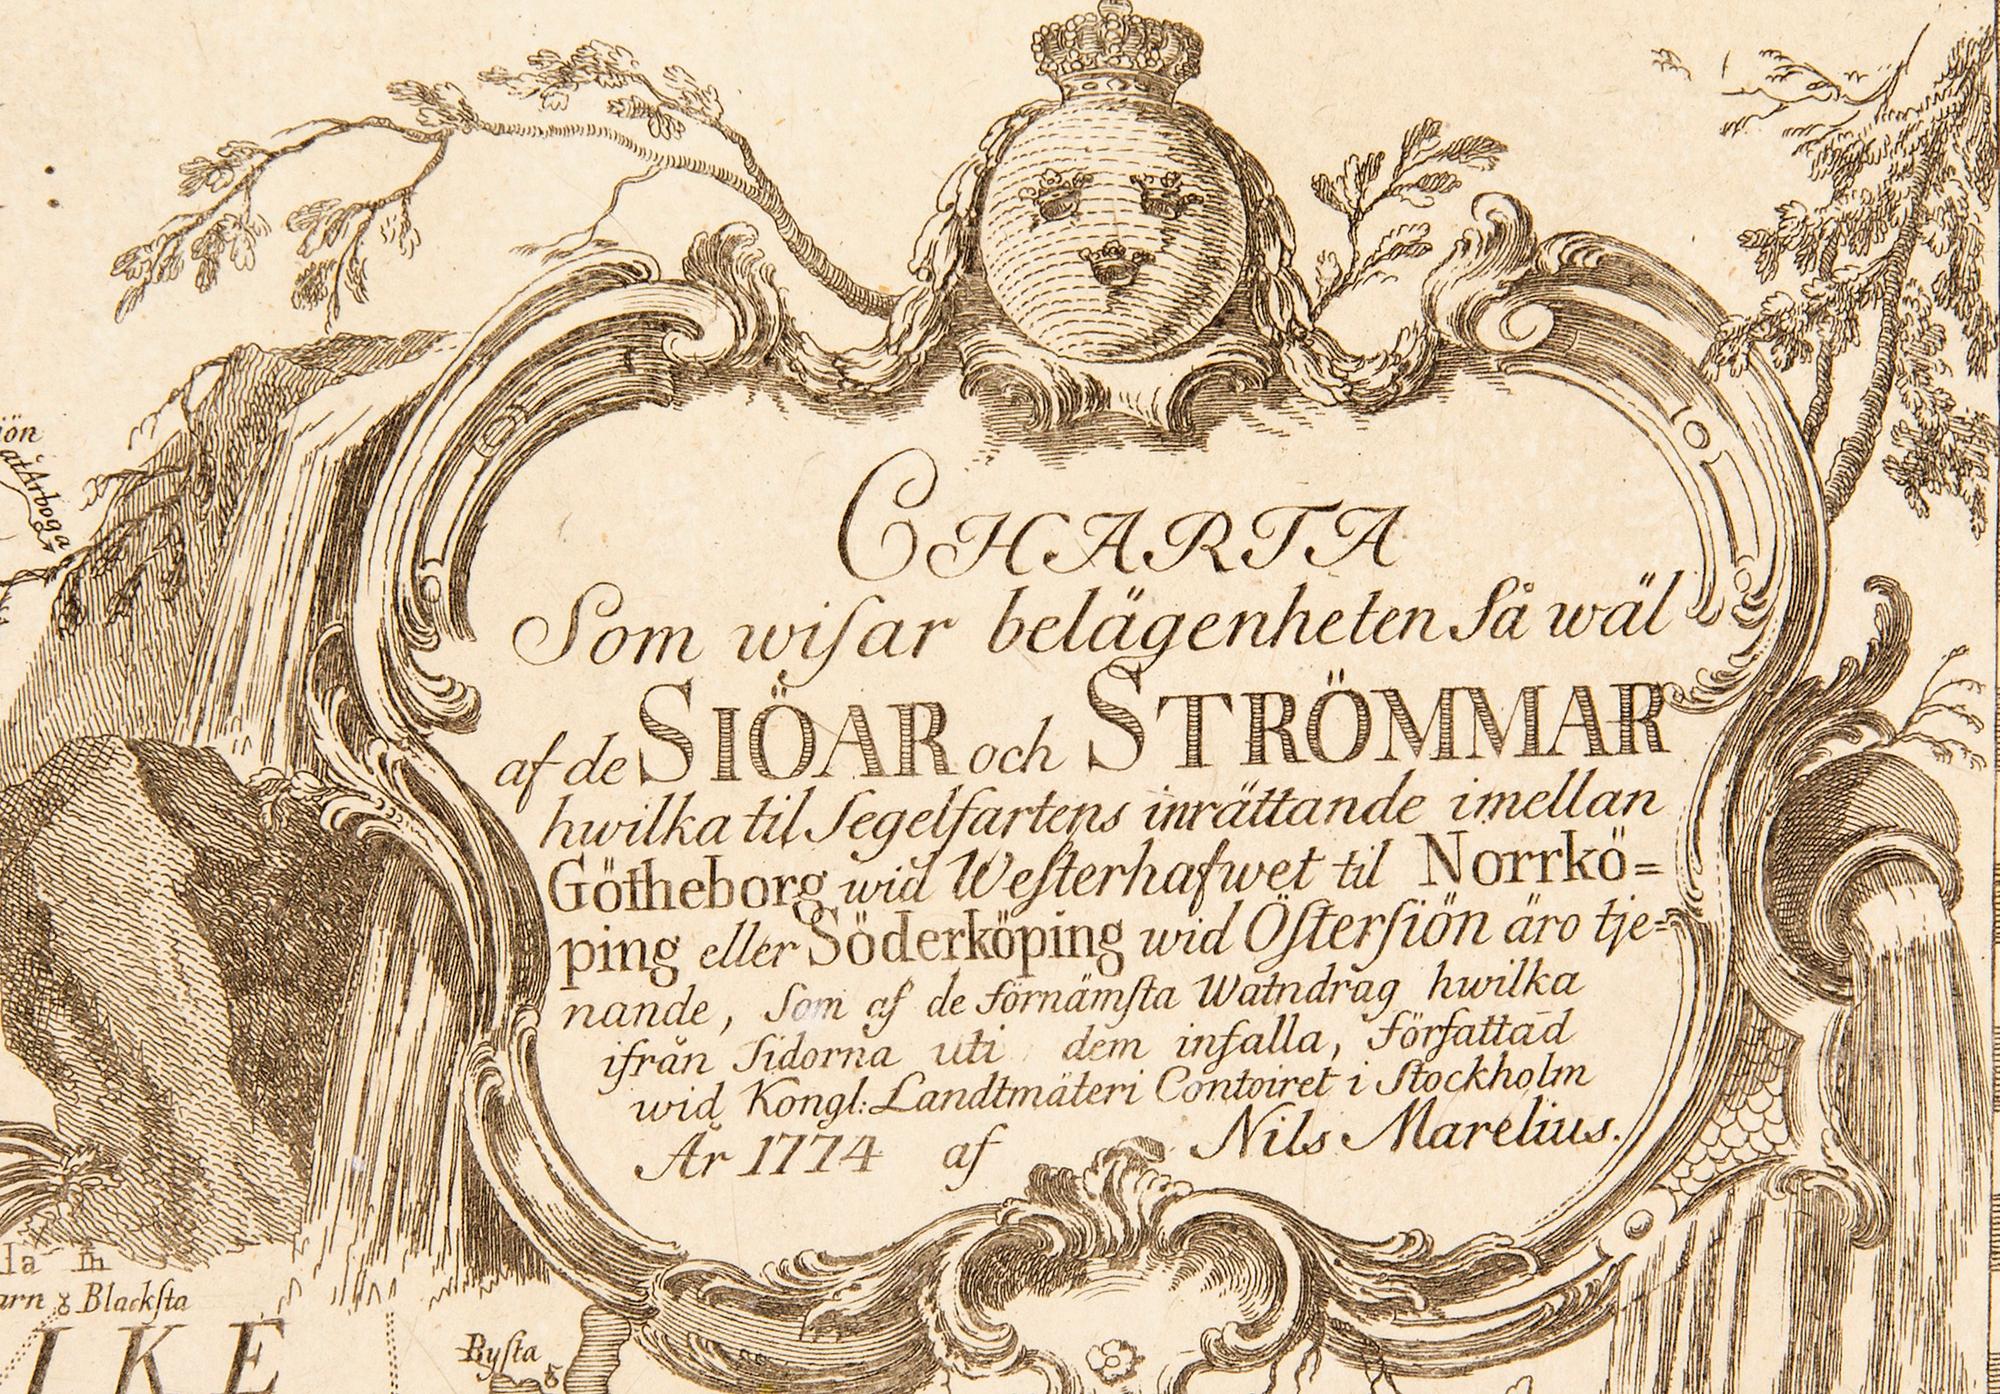 CHARTA
Som wiſar belägenheten ſå wäl
af de SIÖAR och STRÖMMAR
hwilka til Segelfartens inrättande imellan
Götheborg wid Weſterhafwet til Norrkö=
ping eller Söderköping wid Öſterſiön äro tje=
nande, ſom af de förnämſta Watndrag hwilka
ifrån ſidorna uti dem infalla, författad
wid Kongl: Landtmäteri Contoiret i Stockholm
År 1774 af Nils Marelius.
iön
at Arboga
la m
arn & Blackſta
IKE
Byſta